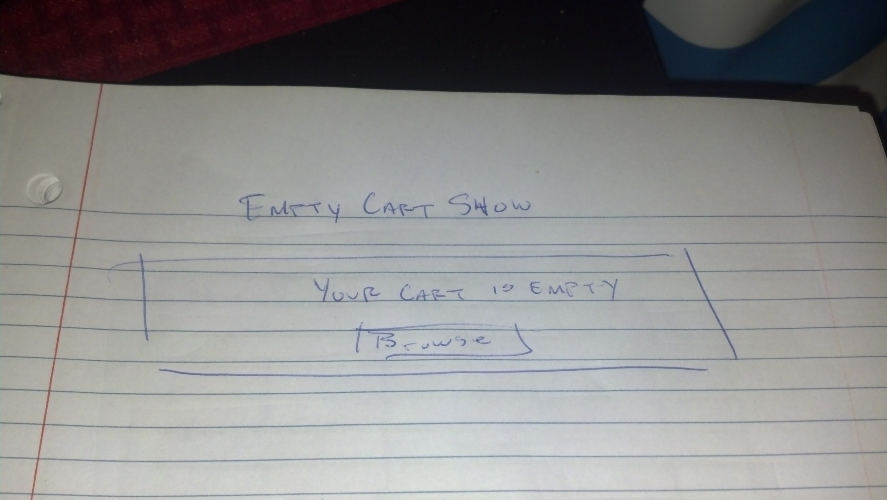 EMPTY CART SHOW
YOUR CART IS EMPTY
Browse